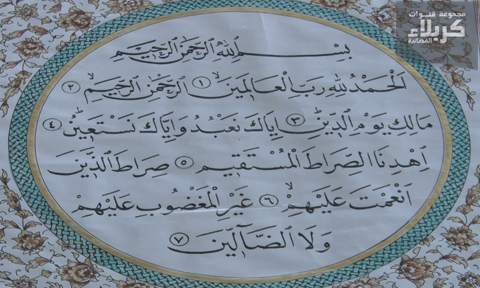 مجموعة قنوات
كربلاء
الفضائية
بِسْمِ اللهِ الرَّحْمٰنِ الرَّحِيْمِ
اَلْحَمْدُ لِلّٰهِ رَبِّ الْعَالَمِيْنَ ١ اَلرَّحْمٰنِ الرَّحِيْمِ ٢
مَالِكِ يَوْمِ الدِّيْنِ ٣ اِيَّاكَ نَعْبُدُ وَاِيَّاكَ نَسْتَعِيْنُ ٤
اِهْدِنَا الصِّرَاطَ الْمُسْتَقِيْمَ ٥ صِرَاطَ الَّذِيْنَ
اَنْعَمْتَ عَلَيْهِمْ ٦ غَيْرِ الْمَغْضُوْبِ عَلَيْهِمْ
وَلَا الضَّالِّيْنَ ٧